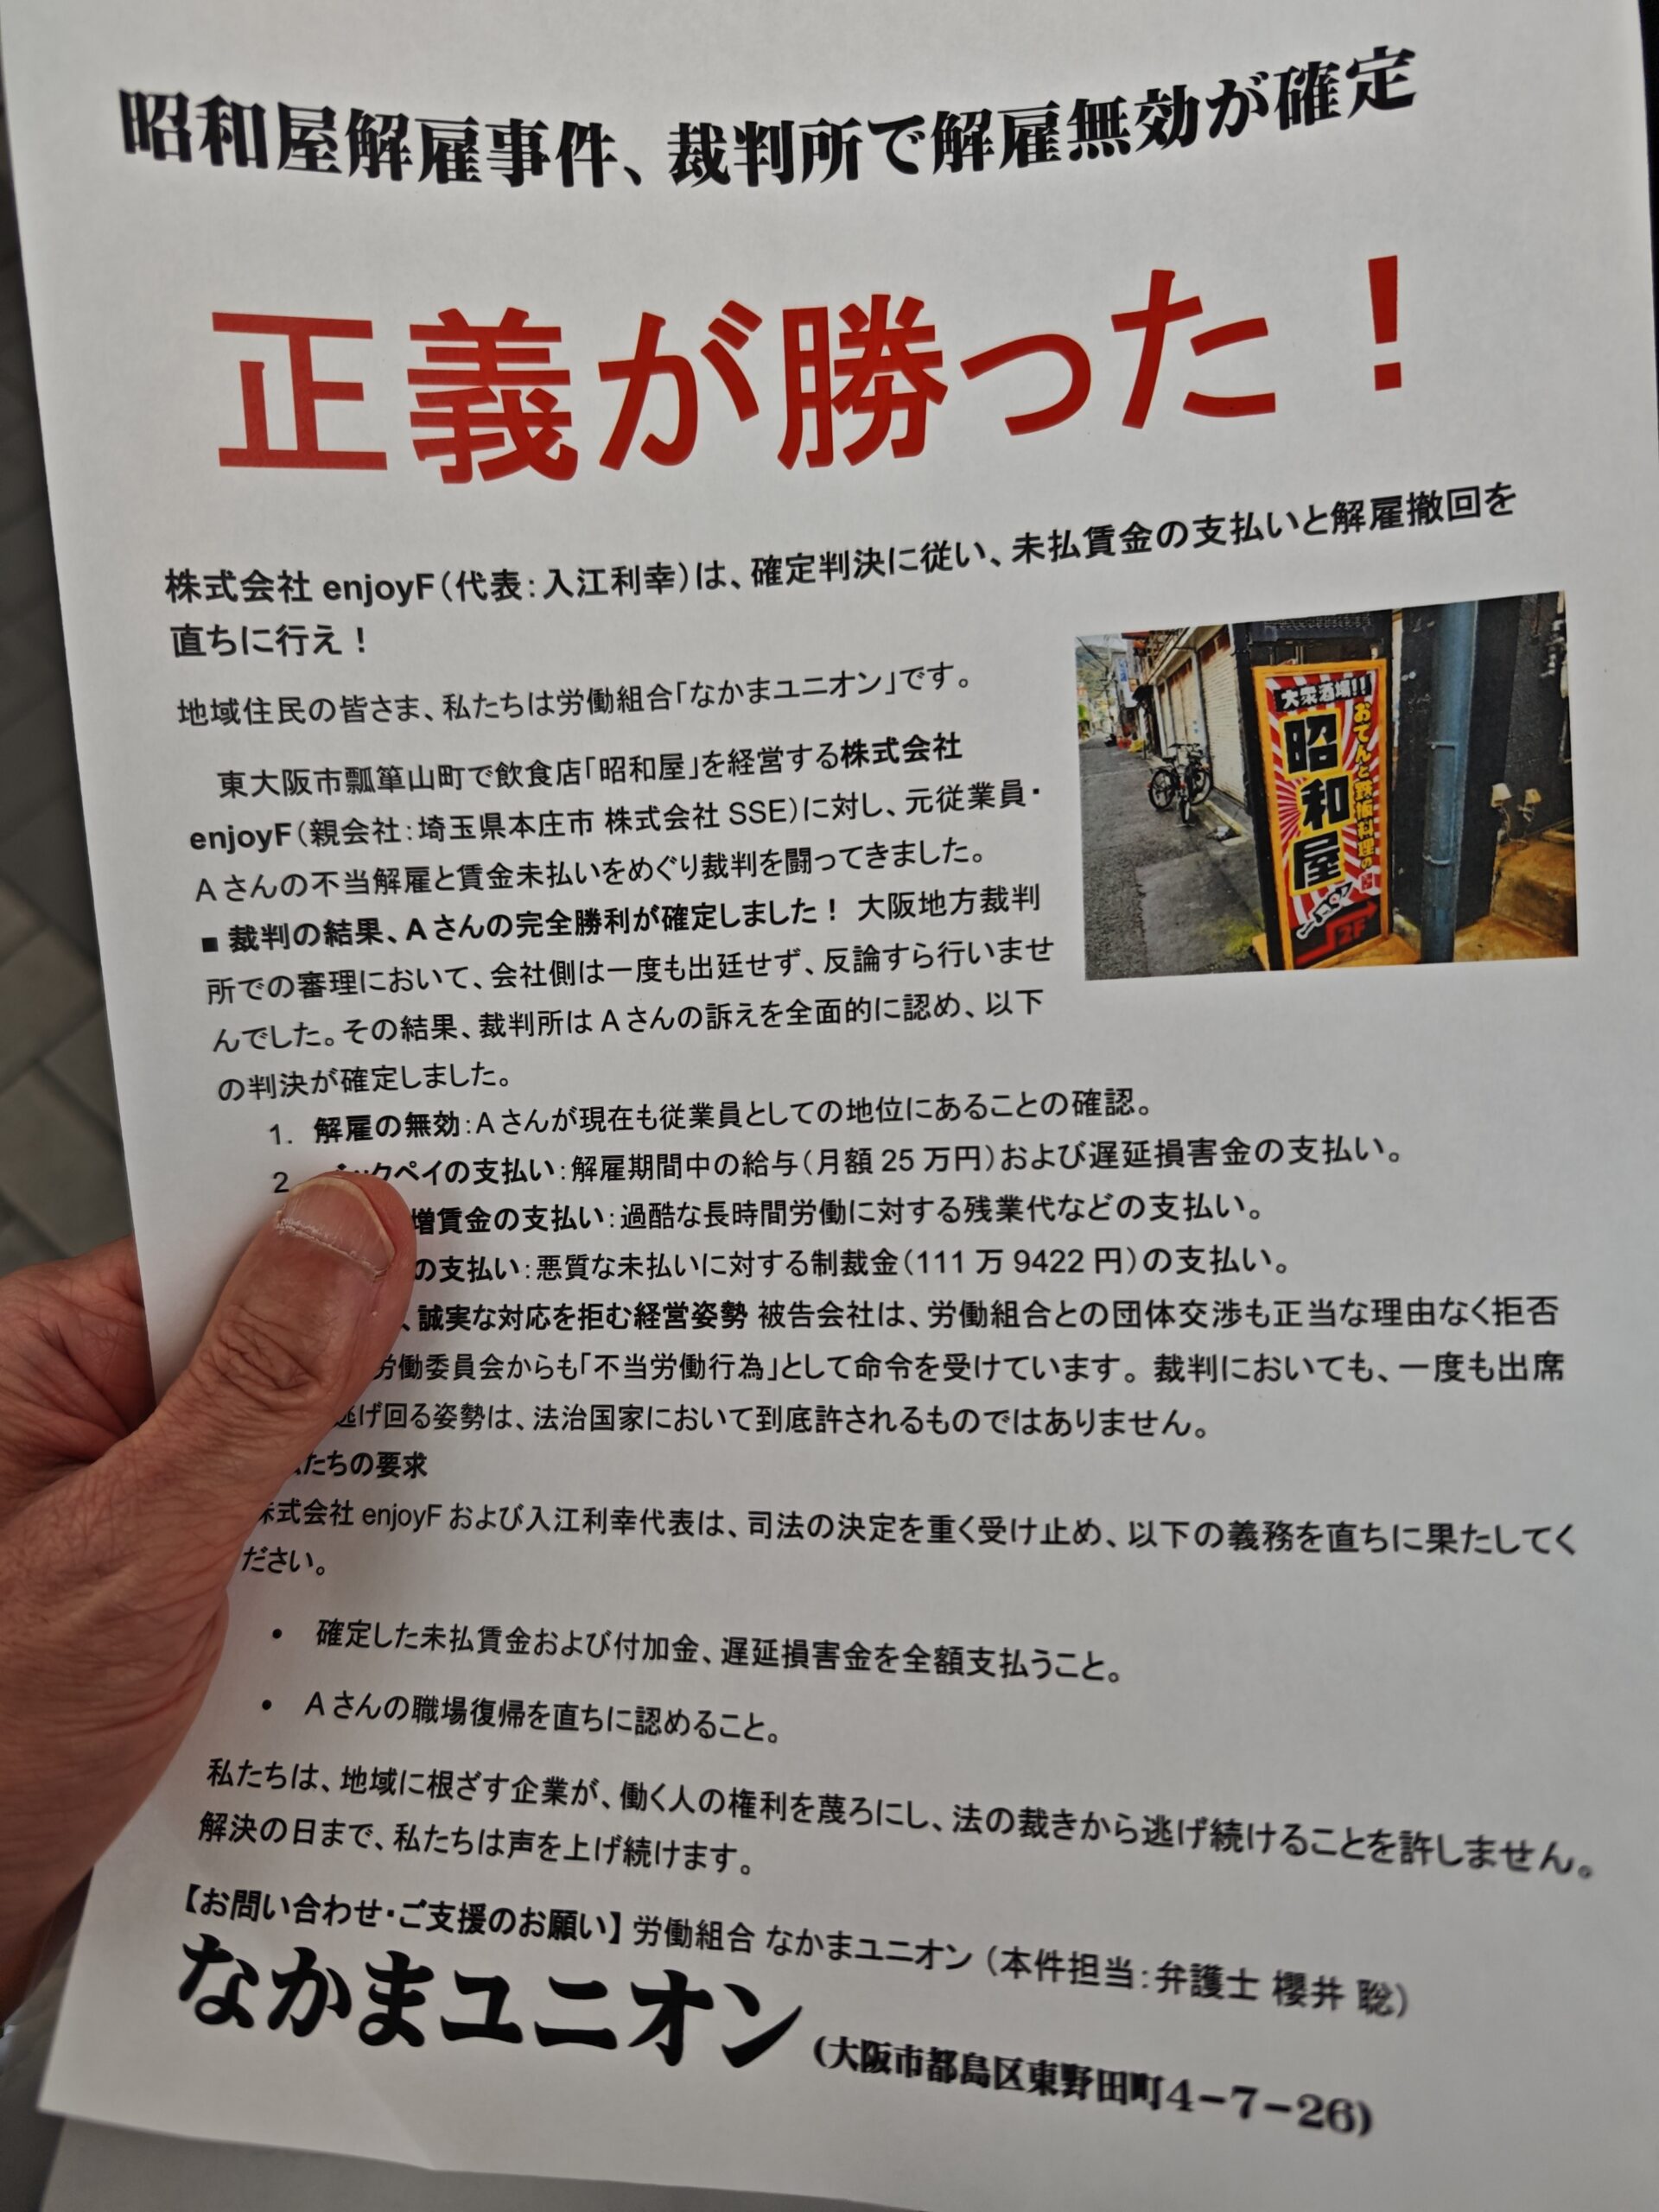 昭和屋解雇事件、裁判所で解雇無効が確定
正義が勝った！
株式会社 enjoyF（代表：入江利幸）は、確定判決に従い、未払賃金の支払いと解雇撤回を
直ちに行え！
地域住民の皆さま、私たちは労働組合「なかまユニオン」です。
東大阪市瓢箪山町で飲食店「昭和屋」を経営する株式会社
enjoyF（親会社：埼玉県本庄市 株式会社 SSE）に対し、元従業員・
Aさんの不当解雇と賃金未払いをめぐり裁判を闘ってきました。
■ 裁判の結果、Aさんの完全勝利が確定しました！ 大阪地方裁判
所での審理において、会社側は一度も出廷せず、反論すら行いませ
んでした。その結果、裁判所はAさんの訴えを全面的に認め、以下
の判決が確定しました。
大衆酒場!!
おでんと鉄板料理の
昭和屋
2F
1. 解雇の無効：Aさんが現在も従業員としての地位にあることの確認。
2. バックペイの支払い：解雇期間中の給与（月額 25 万円）および遅延損害金の支払い。
増賃金の支払い：過酷な長時間労働に対する残業代などの支払い。
の支払い：悪質な未払いに対する制裁金（111 万 9422 円）の支払い。
、誠実な対応を拒む経営姿勢 被告会社は、労働組合との団体交渉も正当な理由なく拒否
労働委員会からも「不当労働行為」として命令を受けています。裁判においても、一度も出席
逃げ回る姿勢は、法治国家において到底許されるものではありません。
たちの要求
株式会社 enjoyF および入江利幸代表は、司法の決定を重く受け止め、以下の義務を直ちに果たしてく
ださい。
• 確定した未払賃金および付加金、遅延損害金を全額支払うこと。
• Aさんの職場復帰を直ちに認めること。
私たちは、地域に根ざす企業が、働く人の権利を蔑ろにし、法の裁きから逃げ続けることを許しません。
解決の日まで、私たちは声を上げ続けます。
【お問い合わせ・ご支援のお願い】労働組合 なかまユニオン （本件担当：弁護士 櫻井 聡）
なかまユニオン（大阪市都島区東野田町４−７−２６）